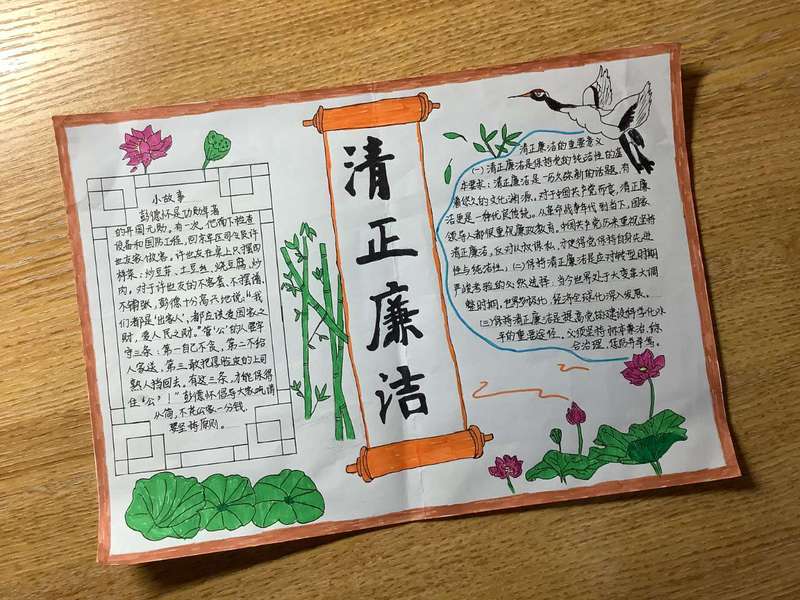 小故事
彭德怀是功勋卓著
的开国元勋。有一次，他南下检查
设备和国防工程，回京军区司令员许
世友家做客。许世友在桌上只摆四
样菜：炒豆芽、土豆丝、烧豆腐、炒
肉。对于许世友的不客套、不摆谱、
不铺张，彭德怀十分高兴地说："我
们都是'出家人'，都应该爱国家之
财，爱人民之财。"管'公'的人要牢
守三条：第一自己不贪，第二不给
人家送，第三敢把
熟人挡回去。有这三条，才能保得
住'公'！"彭德怀倡导大家吃请
从简，不花公家一分钱，
要坚持原则。
清正廉洁
清正廉洁的重要意义
(一)清正廉洁是保持党的纯洁性的基
本要求：清正廉洁是一历久弥新的话题，有
着悠久的文化渊源。对于中国共产党而言，清正廉
洁更是一种优良传统。从革命战争年代到当下，国家
领导人都很重视廉政教育。中国共产党历来重视坚持
清正廉洁，反对以权谋私，才使得党保持自身先进
性与纯洁性。(二)保持清正廉洁是应对转型时期
严峻考验的必然选择：当今世界处于大变革大调
整时期，世界多极化、经济全球化深入发展。
(三)保持清正廉洁是提高党的建设科学化水
平的重要途径。必须坚持标本兼治，综
合治理，惩防并举